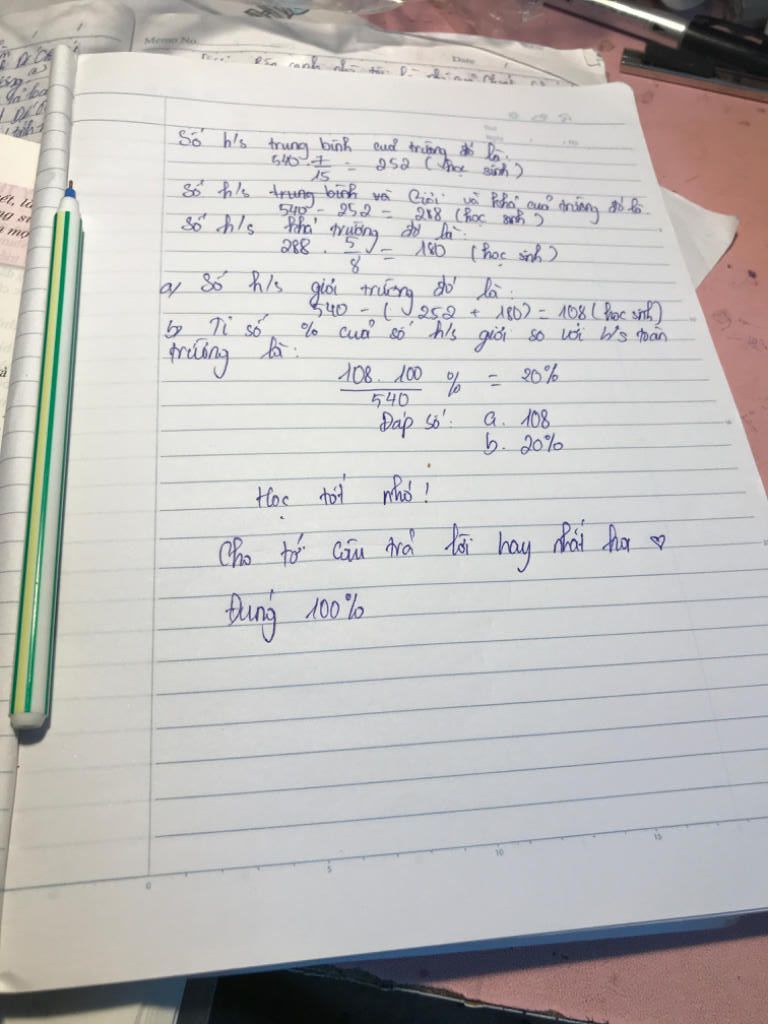 Memo No.
Date
Số h/s trung bình cuả trường đó là:
540 . 7/15 = 252 (học sinh)
Số h/s trung bình và Giỏi và khá cuả trường đó là
540 - 252 = 288 (học sinh)
Số h/s khá trường đó là:
288 . 5/8 = 180 (học sinh)
a) Số h/s giỏi trường đó là:
540 - ( 252 + 180) = 108 (học sinh)
b) Tỉ số % cuả số h/s giỏi so với h/s toàn
trường là:
108. 100/540 % = 20%
Đáp số: a. 108
b. 20%
Học tốt nhó!
Cho tớ câu trả lời hay nhất ha ♡
Đúng 100%
0 5 10 15